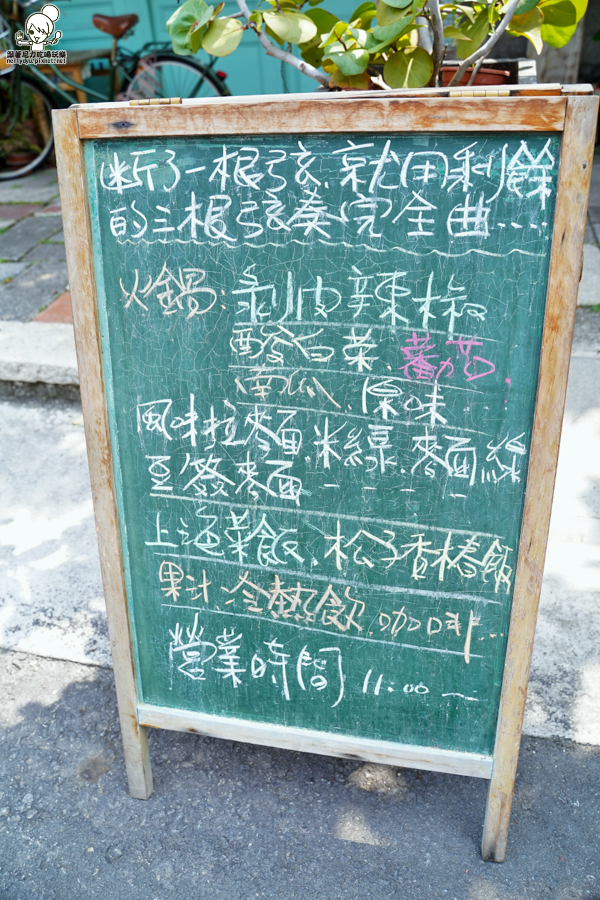 跟著尼力吃喝玩樂
nellydyu.pixnet.net
斷了一根弦,就用剩餘
的三根弦奏完全曲....
火鍋:剝皮辣椒
酸白菜、蕃茄、
南瓜、原味
風味拉麵、米線、麥面線
上海菜飯、松子香椿飯
果汁、冷熱飲、咖啡...
營業時間 11:00~